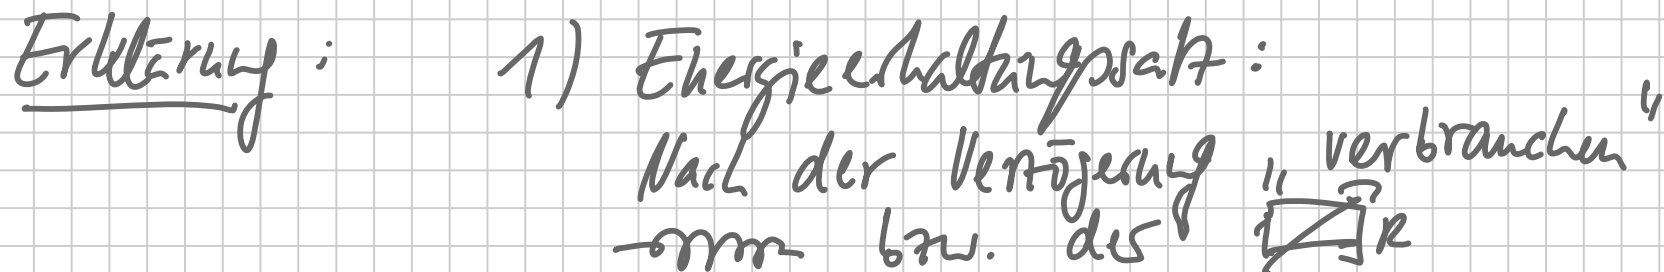 Erklärung: 1) Energieerhaltungssatz:
Nach der Verzögerung "verbrauchen"
bzw. der R